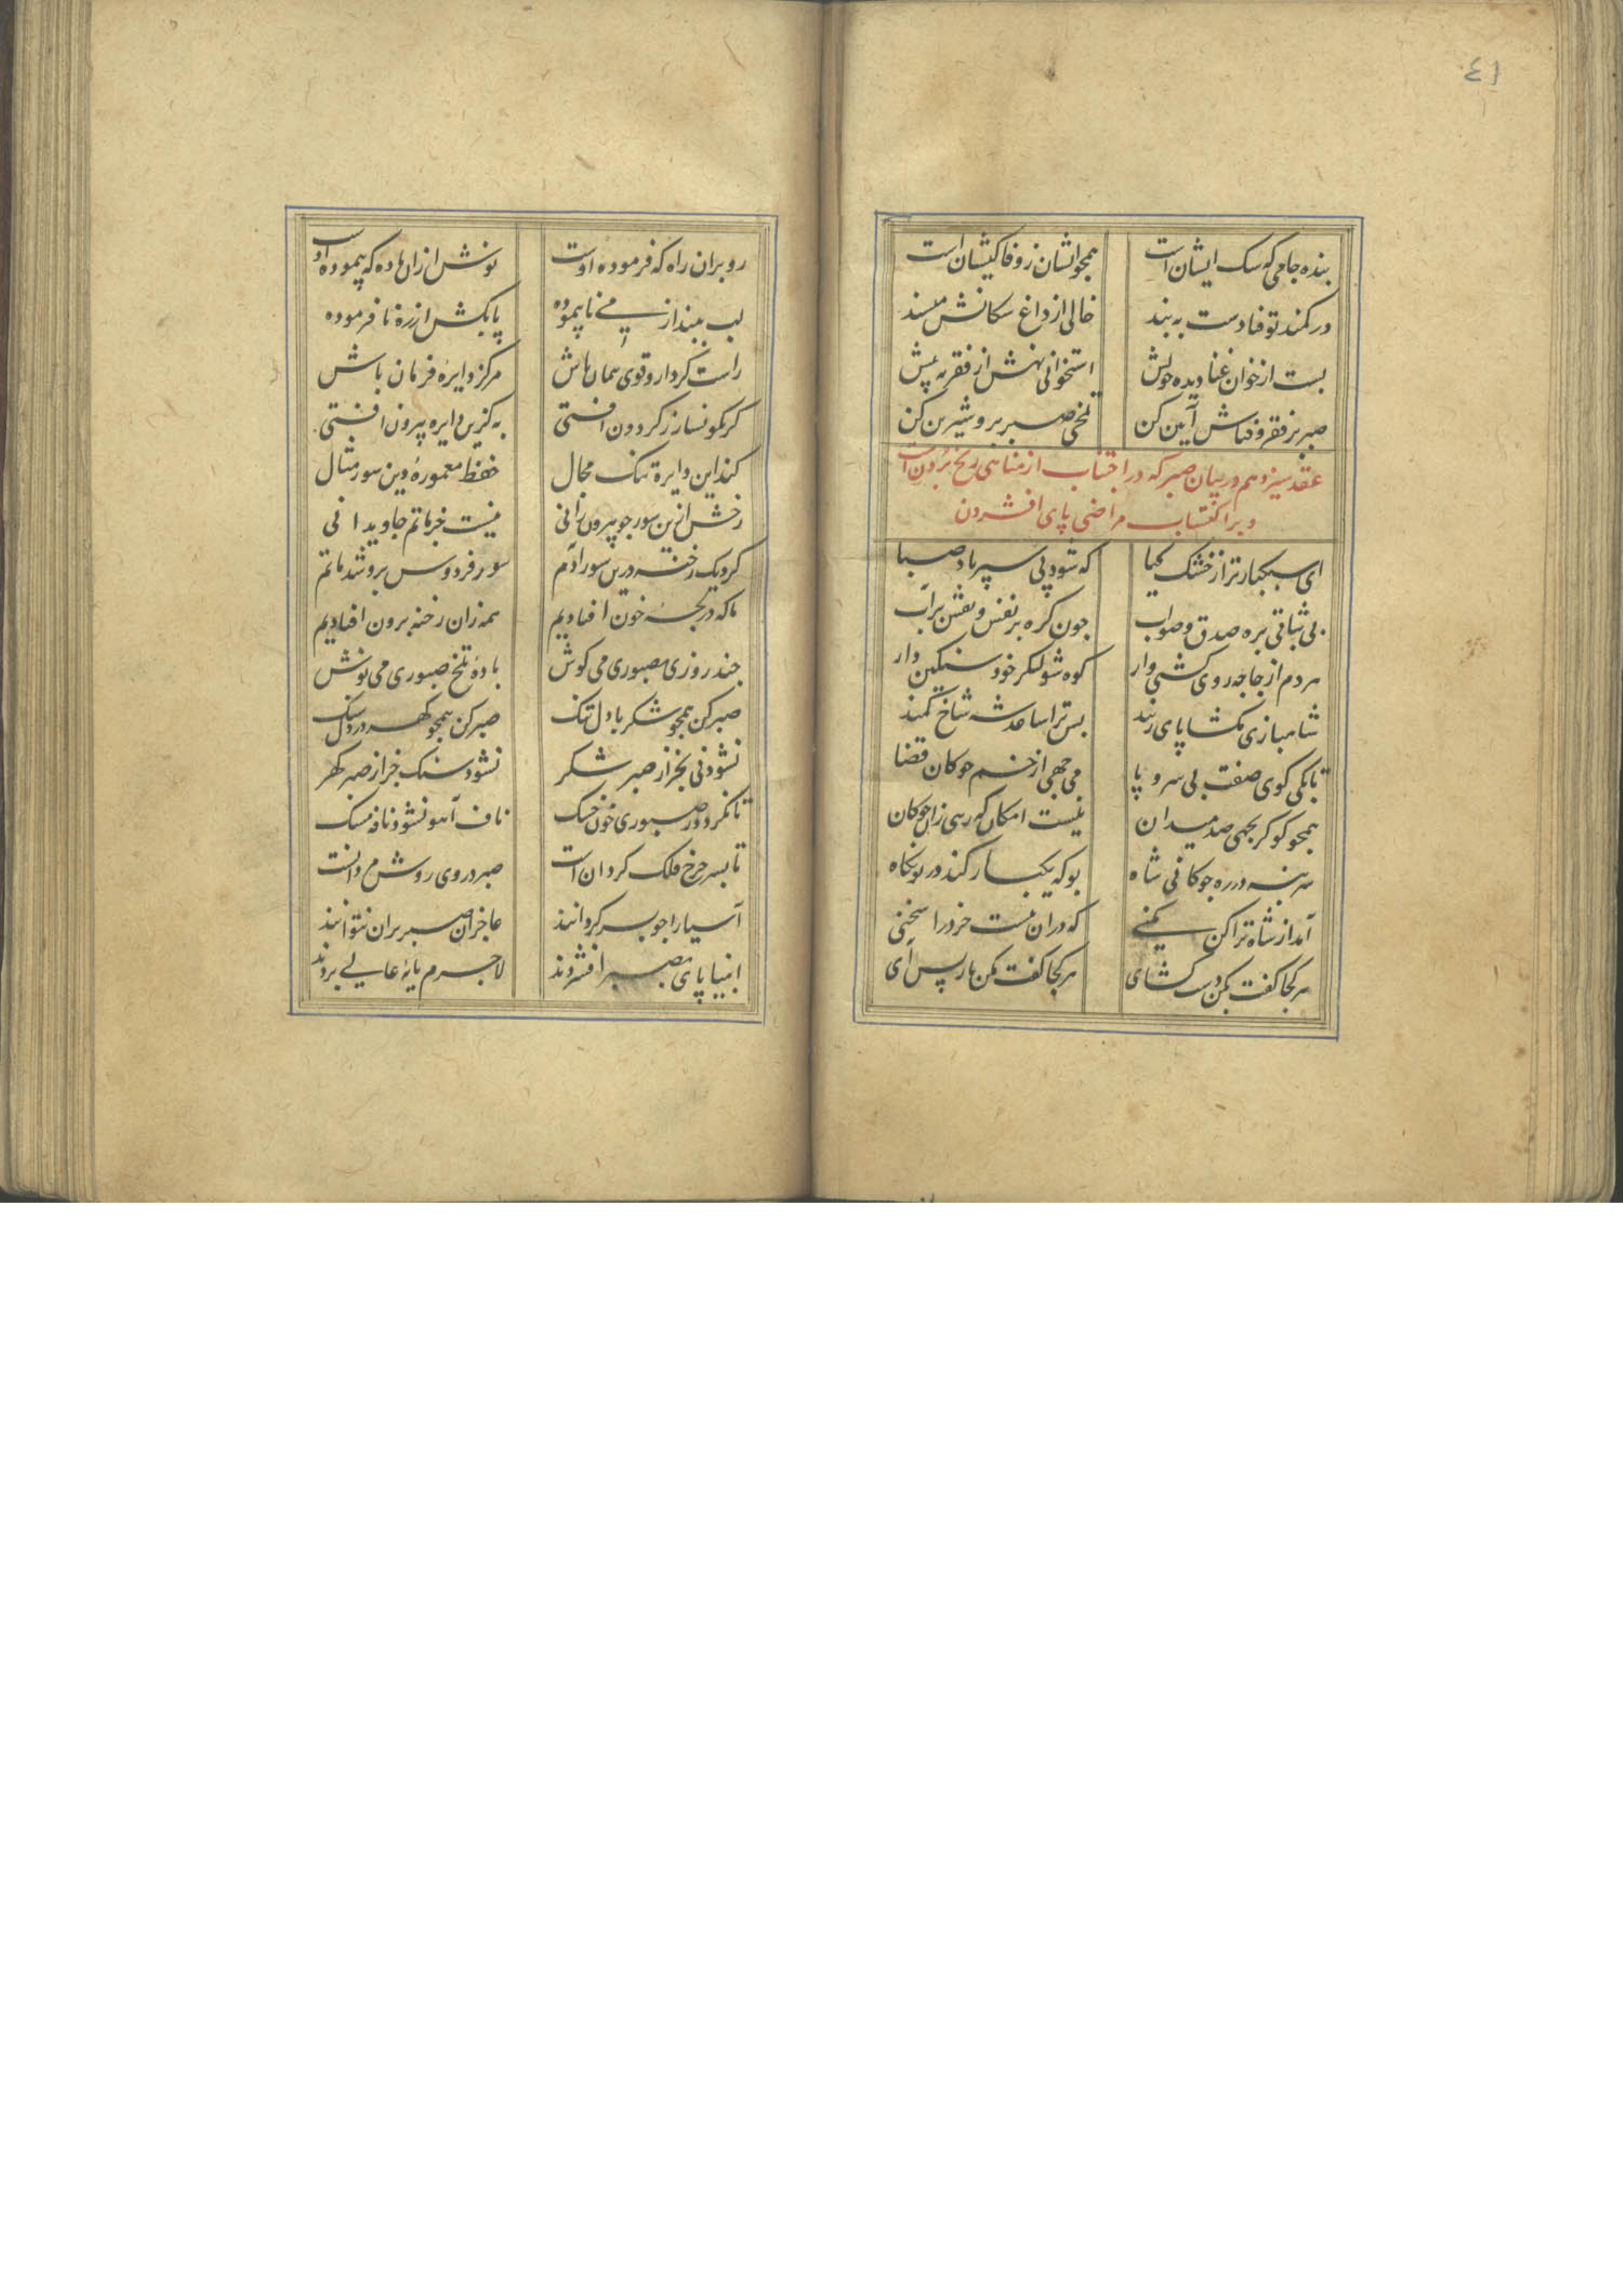 ٤١
بنده جامی که سک ایشان است همچو ایشان ز وفا کیشان است
در کمند تو فتادست به بند خالی از داغ سکانش مپسند
بست از خوان غنا دیده خویش استخوانی نهش از فقر به پیش
صبر بر فقر و فناش آیین کن تلخی صبر برو شیرین کن
عقد سیزدهم در بیان صبر که در اجتناب از مناهی رنج بردن است
و بر اکتساب مراضی پای افشردن
ای سبکبارتر از خشک کیا که شود پی سپر باد صبا
بی ثباتی بره صدق و صواب چون کره بر نفس و نقش بر آب
هر دم از جا چه روی کشتی وار کوه شو لنکر خود سنکین دار
شاهبازی مکشا پای ز بند بس ترا ساعد شه شاخ کمند
تا بکی کوی صفت بی سر و پا می جهی از خم چوکان قضا
همچو کو کر بجهی صد میدان نیست امکان که رهی زان چوکان
سر بنه در ره چوکانی شاه بو که یکبار کند در تو نکاه
آمد از شاه ترا کن مکنی که در ان نیست خرد را سخنی
هر کجا کفت بکن دست کشای هر کجا کفت مکن باز پس آی
رو بر ان راه که فرموده اوست نوش ازان باده که پیموده اوست
لب ببند از می ناپیموده پا بکش از ره نافرموده
راست کردار و قوی پیمان باش مرکز دایره فرمان باش
کر نکونسار ز کردون افتی به کزین دایره بیرون افتی
کند این دایره تنک مجال حفظ معموره دین سور مثال
رخش ازین سور چو بیرون رانی نیست جز ماتم جاویدانی
کرد یک رخنه درین سور آدم سور فردوس برو شد ماتم
ما که در لجه خون افتادیم همه زان رخنه برون افتادیم
چند روزی بصبوری می کوش باده تلخ صبوری می نوش
صبر کن همچو شکر با دل تنک صبر کن همچو کهر در دل سنک
نشود نی بجز از صبر شکر نشود سنک جز از صبر کهر
تا نکردد ز صبوری خون خشک ناف آهو نشود نافه مشک
تا بسر چرخ فلک کردان است صبر در وی روش مردانست
آسیا را چو بسر کردانند عاجزان صبر بران نتوانند
انبیا پای بصبر افشردند لاجرم پایه عالی بردند